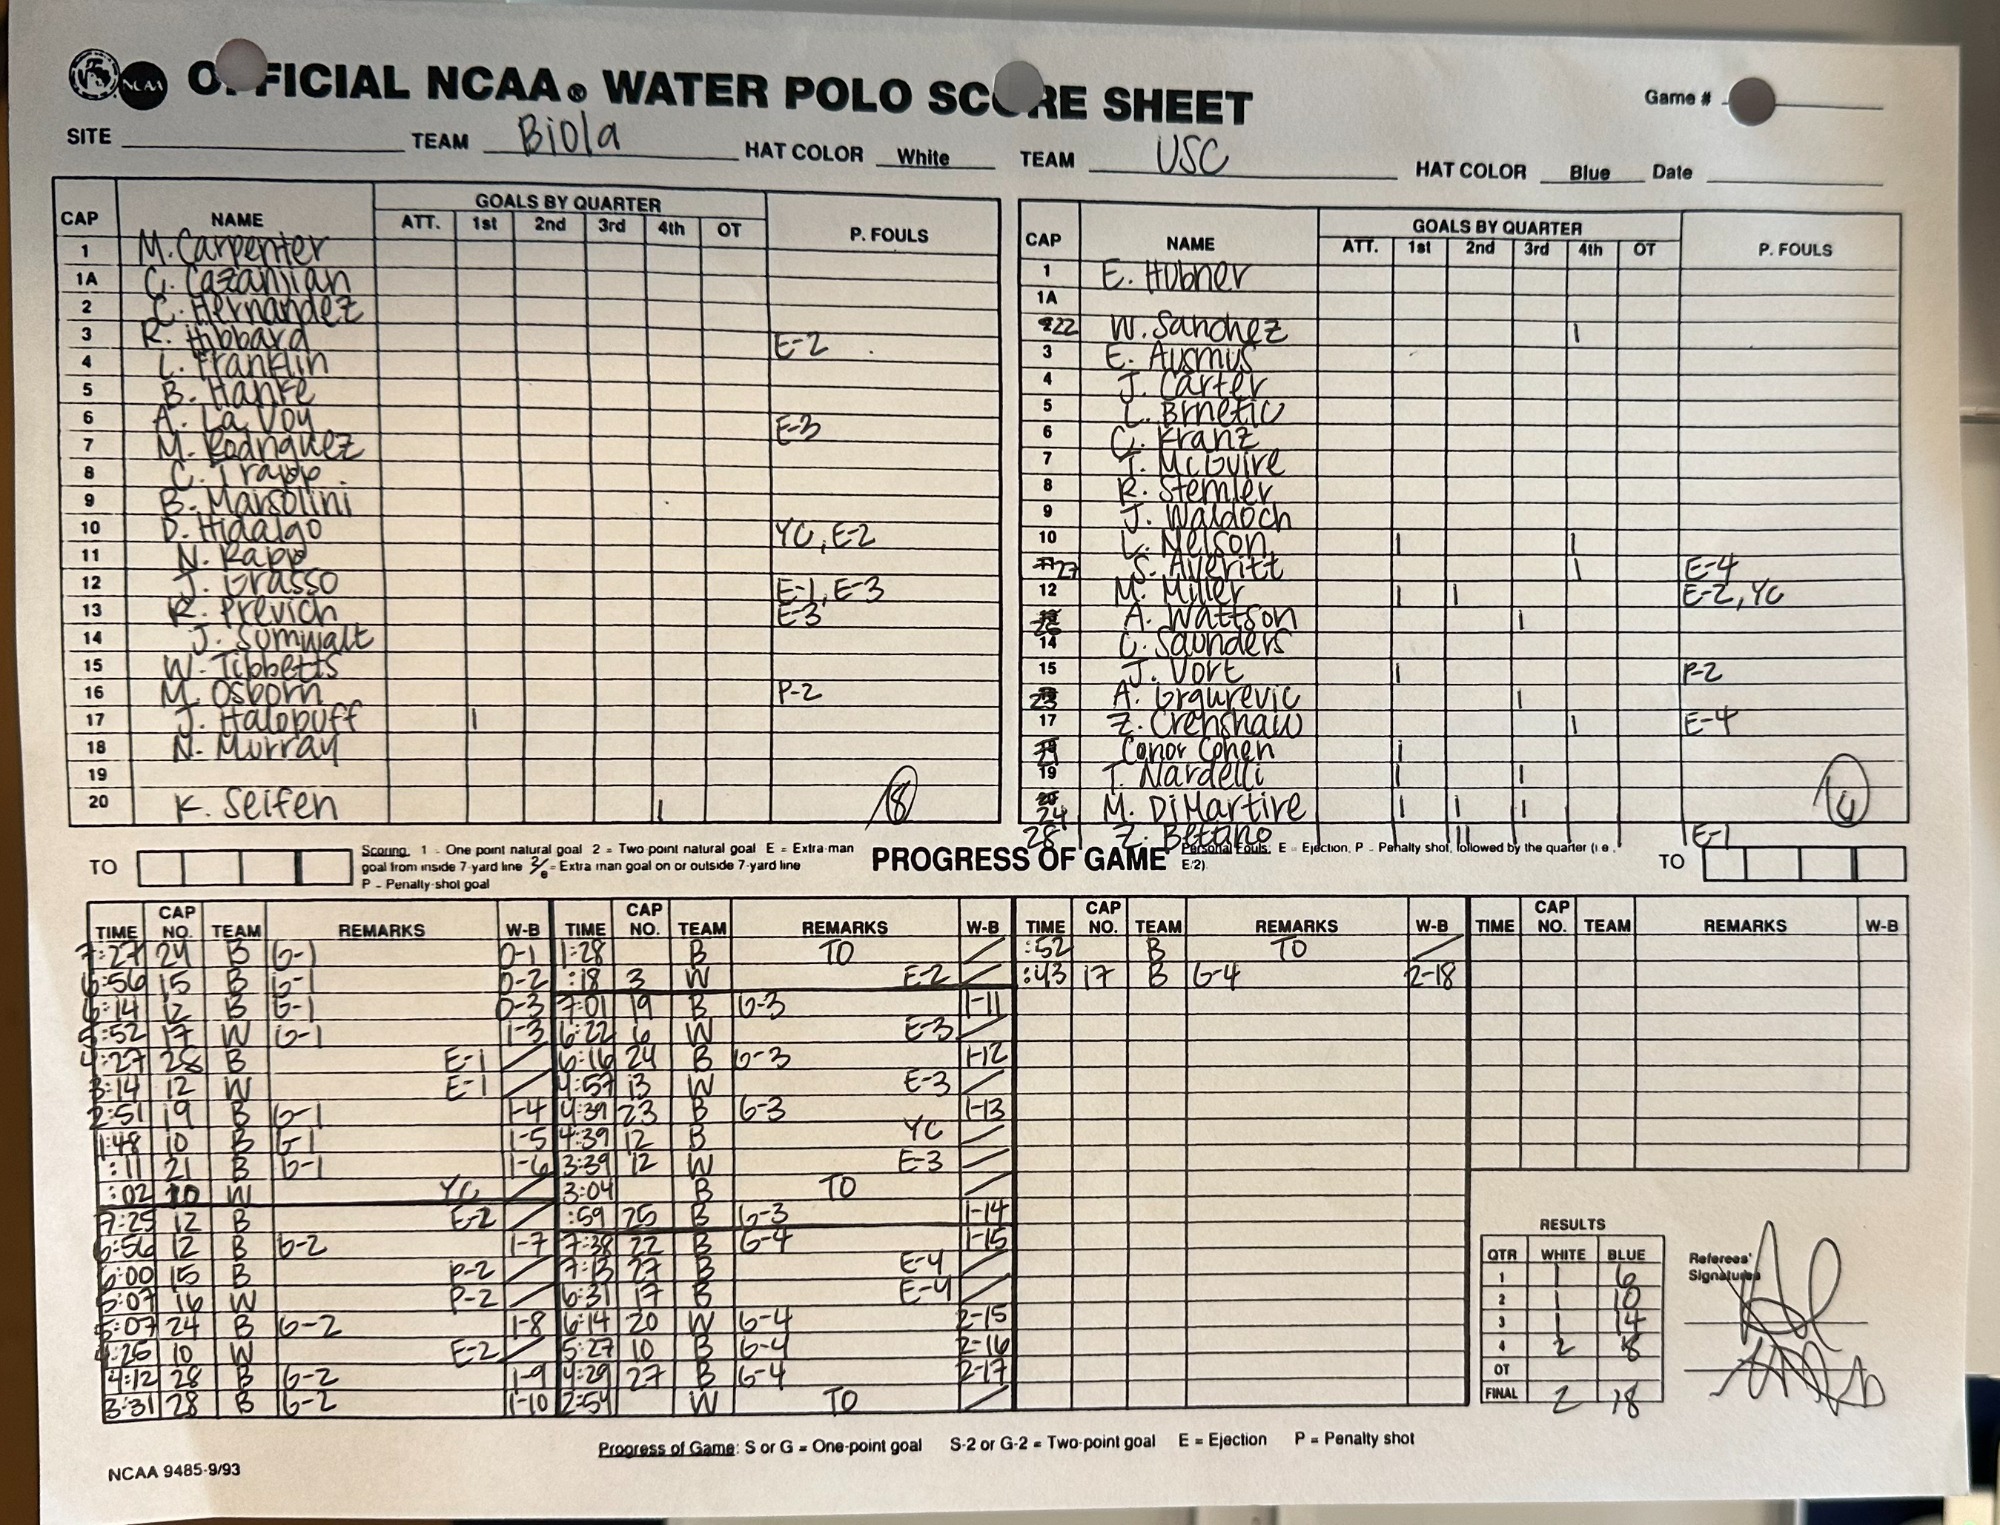 OFFICIAL NCAA® WATER POLO SCORE SHEET
Game #
SITE TEAM Biola HAT COLOR White TEAM USC HAT COLOR Blue Date
CAP NAME GOALS BY QUARTER P. FOULS
ATT. 1st 2nd 3rd 4th OT
1 M. Carpenter
1A C. Cazanjian
2 C. Hernandez
3 R. Hibbard E-2
4 L. Franklin
5 B. Hanke
6 A. La Voy E-3
7 M. Rodriguez
8 C. Trapp
9 B. Marsolini
10 D. Hidalgo YC, E-2
11 N. Rapp
12 J. Grasso E-1, E-3
13 R. Previch E-3
14 J. Sumwalt
15 W. Tibbetts
16 M. Osborn P-2
17 J. Halepuff |
18 N. Murray
19
20 K. Seifen |
CAP NAME GOALS BY QUARTER P. FOULS
ATT. 1st 2nd 3rd 4th OT
1 E. Hubner
1A
22 W. Sanchez |
3 E. Ausmus
4 J. Carter
5 L. Brnetic
6 C. Kranz
7 T. McGuire
8 R. Stemler
9 J. Waldoch
10 L. Nelson | |
27 S. Averitt | E-4
12 M. Miller | | E-2, YC
A. Wattson |
14 C. Saunders
15 J. Vort | P-2
23 A. Grgurevic |
17 Z. Crenshaw | E-4
21 Conor Cohen |
19 T. Nardelli | |
24 M. DiMartire | | |
28 Z. Bettino || E-1
TO
Scoring. 1 - One point natural goal 2 = Two point natural goal E = Extra-man
goal from inside 7-yard line 2/e = Extra man goal on or outside 7-yard line
P - Penalty-shot goal
PROGRESS OF GAME
Personal Fouls: E - Ejection, P - Penalty shot, followed by the quarter (i e.,
E:2).
TO
TIME CAP NO. TEAM REMARKS W-B
7:27 24 B G-1 0-1
6:56 15 B G-1 0-2
6:14 12 B G-1 0-3
5:52 17 W G-1 1-3
4:27 28 B E-1
3:14 12 W E-1
2:51 19 B G-1 1-4
1:48 10 B G-1 1-5
:11 21 B G-1 1-6
:02 10 W YC
7:25 12 B E-2
6:56 12 B G-2 1-7
6:00 15 B P-2
5:07 16 W P-2
5:07 24 B G-2 1-8
4:26 10 W E-2
4:12 28 B G-2 1-9
3:31 28 B G-2 1-10
TIME CAP NO. TEAM REMARKS W-B
1:28 B TO
:18 3 W E-2
7:01 19 B G-3 1-11
6:22 6 W E-3
6:16 24 B G-3 1-12
4:57 13 W E-3
4:39 23 B G-3 1-13
4:39 12 B YC
3:39 12 W E-3
3:04 B TO
:59 25 B G-3 1-14
7:38 22 B G-4 1-15
7:13 27 B E-4
6:31 17 B E-4
6:14 20 W G-4 2-15
5:27 10 B G-4 2-16
4:29 27 B G-4 2-17
2:54 W TO
TIME CAP NO. TEAM REMARKS W-B
:52 B TO
:43 17 B G-4 2-18
TIME CAP NO. TEAM REMARKS W-B
RESULTS
QTR WHITE BLUE
1 1 6
2 1 10
3 1 14
4 2 18
OT
FINAL 2 18
Referees'
Signatures
Progress of Game: S or G = One-point goal S-2 or G-2 = Two-point goal E = Ejection P = Penalty shot
NCAA 9485-9/93